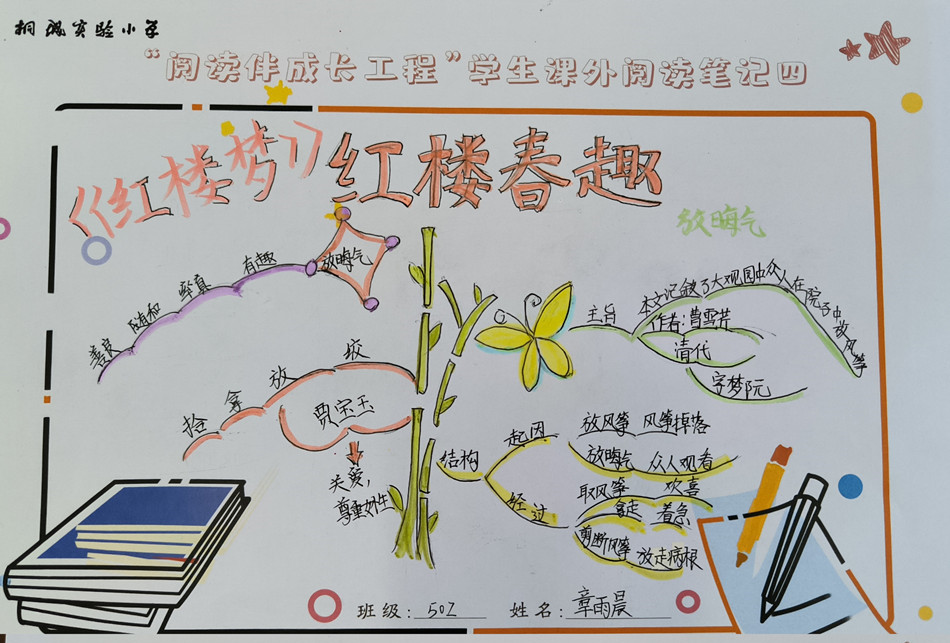 桐城实验小学
“阅读伴成长工程”学生课外阅读笔记四
《红楼梦》红楼春趣
放晦气
放晦气
善良 随和 率真 有趣
捡 拿 放 咬
贾宝玉
关爱，
尊重女生
主旨
本文记叙了大观园中众人在院子中放风筝
作者：曹雪芹
清代
字梦阮
结构
起因
放风筝 风筝掉落
放晦气 众人观看
经过
取风筝 欢喜
拿走 着急
剪断风筝 放走病根
班级：502 姓名：章雨晨